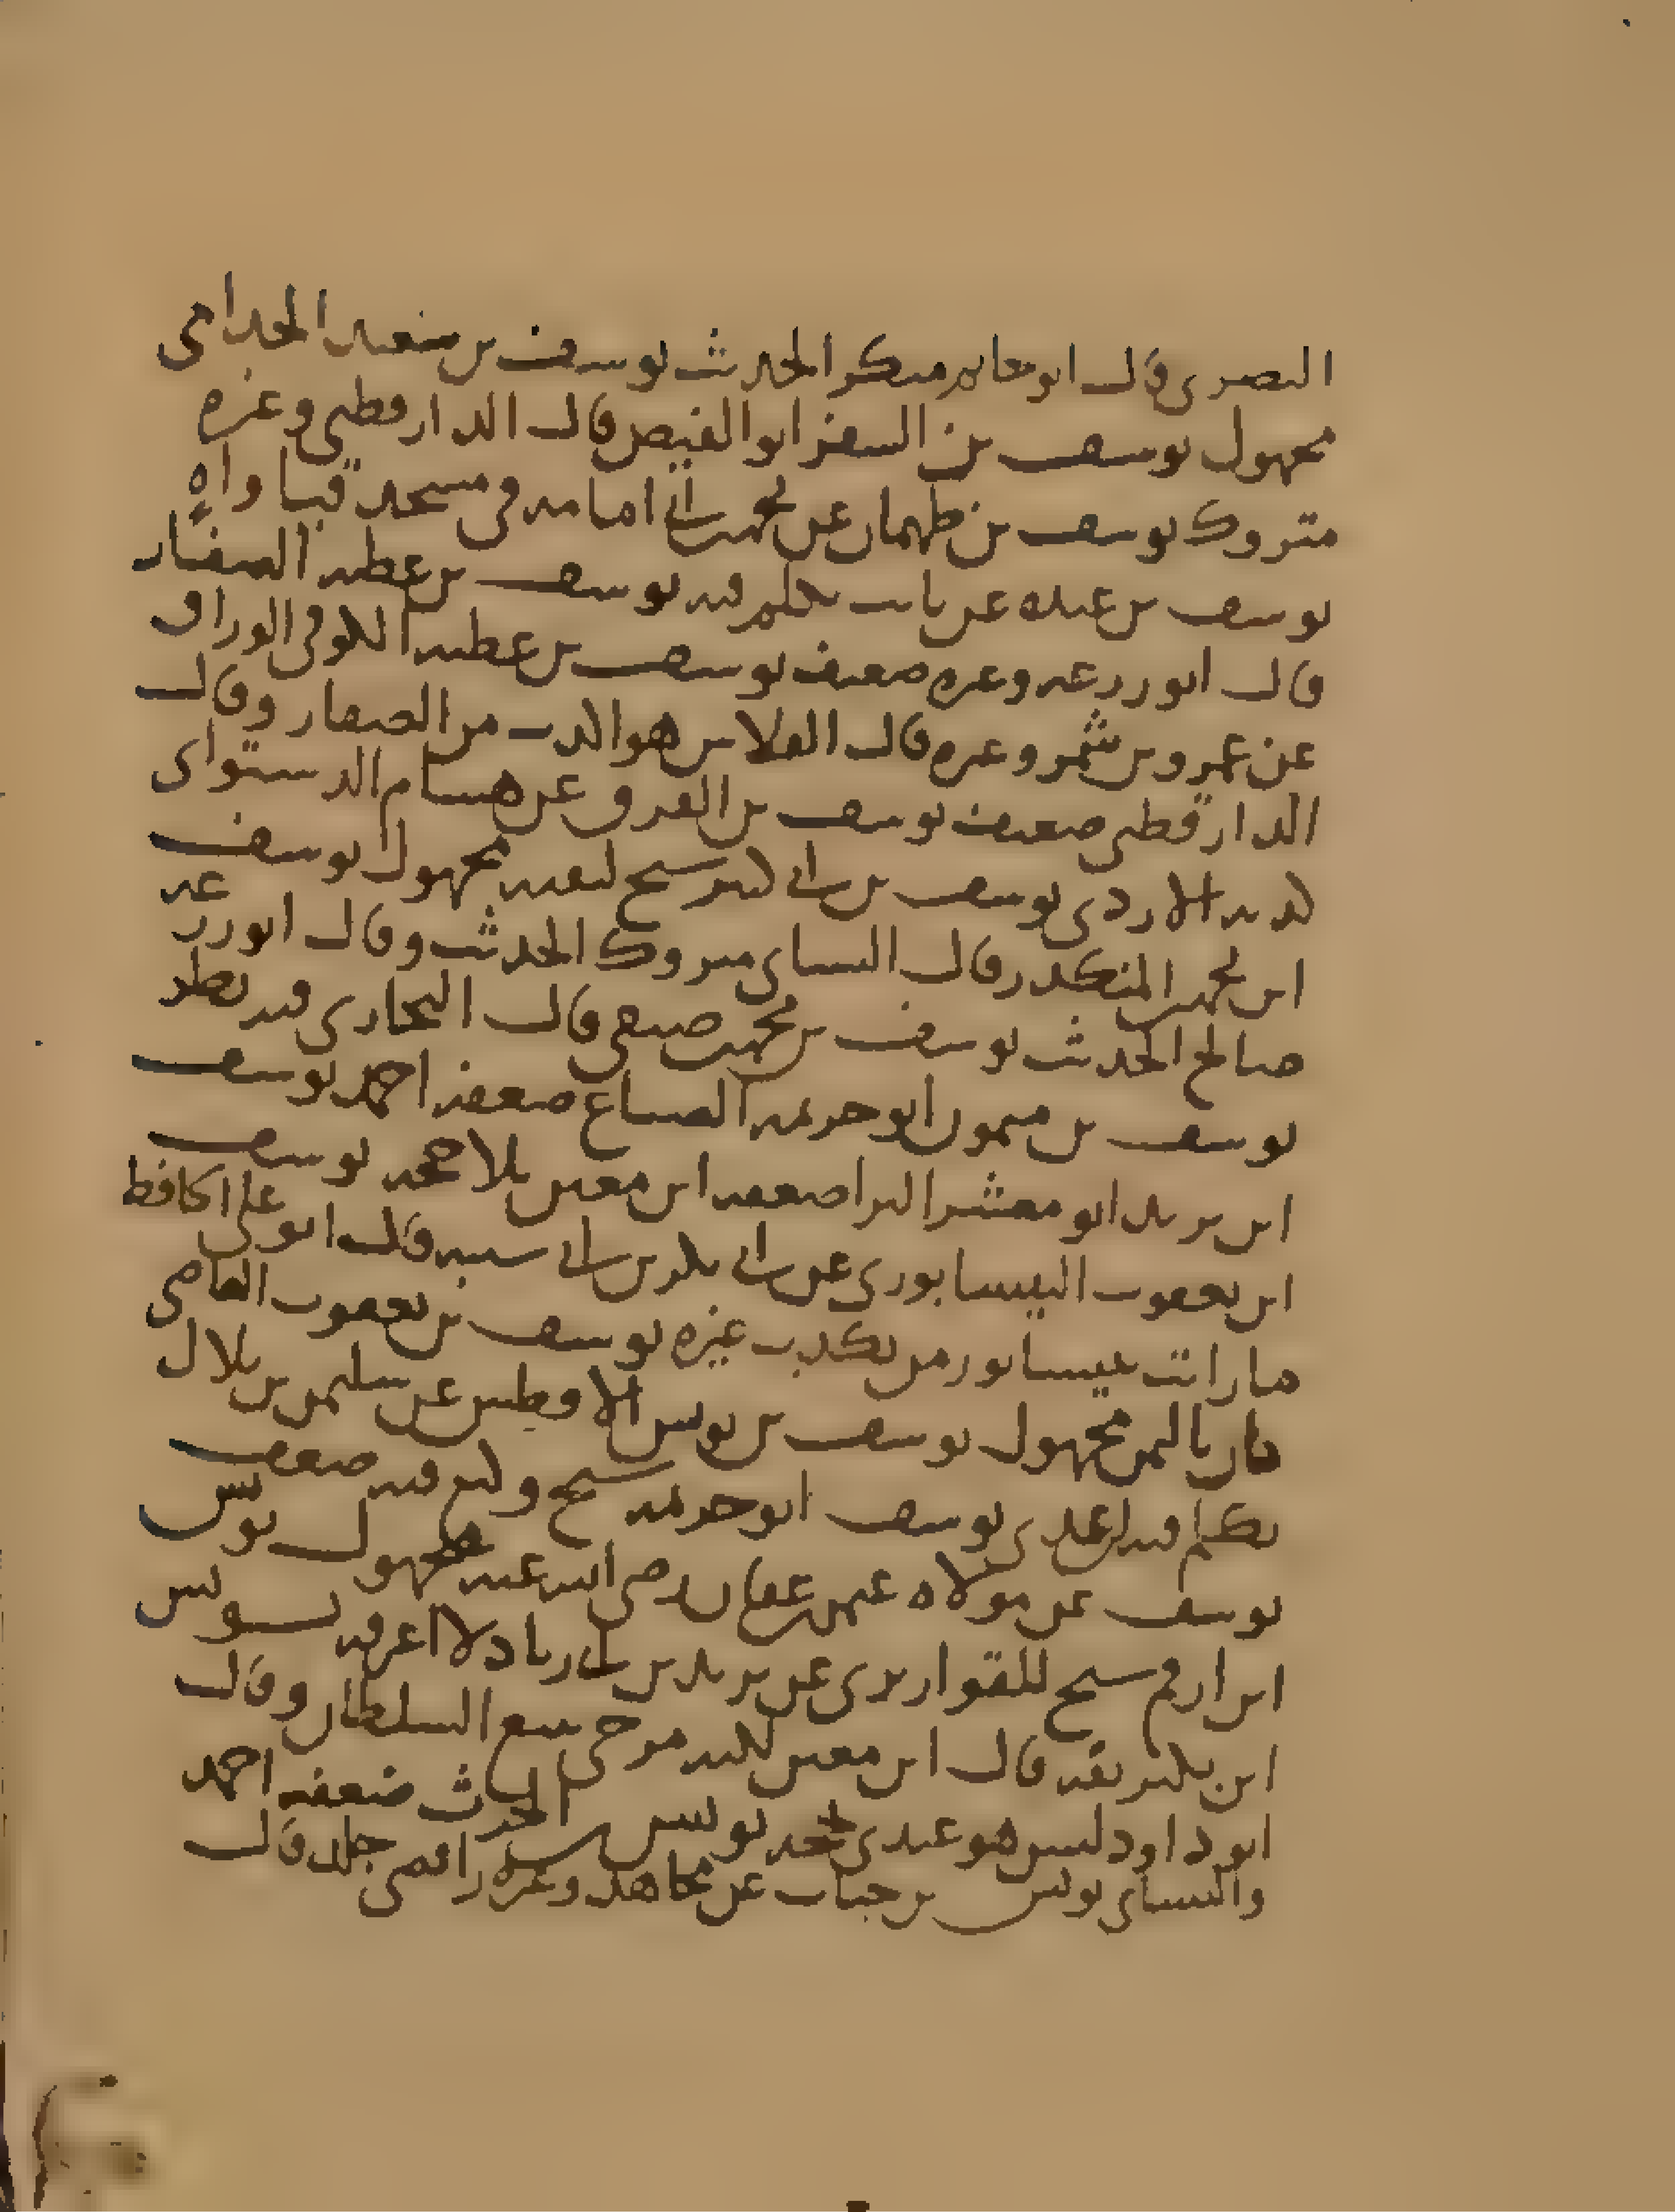 البصرى قال ابو حاتم منكر الحديث يوسف بن سعيد الجدامى
مجهول يوسف بن السفر ابو الفيض قال الدارقطنى وغيره
متروك يوسف بن طهمان عن محمد بن ابى امامه فى مسجد قبا واهٍ
يوسف بن عبده عن ثابت تكلم فيه يوسف بن عطيه الصفار
قال ابو زرعه وغيره ضعيف يوسف بن عطيه الكوفى الوراق
عن عمرو بن شمر وغيره قال الفلاس هو اكذب من الصفار وقال
الدارقطنى ضعيف يوسف بن الغرق عن هشام الدستواى
كذبه الازدى يوسف بن ابى كثير شيخ لبقيه مجهول يوسف
ابن محمد بن المنكدر قال النساى متروك الحديث وقال ابو زرعه
صالح الحديث يوسف بن محمد بن صيفى قال البخارى فيه نظر
يوسف بن ميمون ابو خزيمه الصباغ ضعفه احمد يوسف
ابن يزيد ابو معشر البرا ضعفه ابن معين بلا حجه يوسف
ابن يعقوب النيسابورى عن ابى بكر بن ابى شيبه قال ابو على الحافظ
ما رايت بنيسابور من يكذب غيره يوسف بن يعقوب القاضى
كان باليمن مجهول يوسف بن يونس الافطس عن سليمن بن بلال
تكلم فيه ابن عدى يوسف ابو خزيمه شيخ وكيع فيه ضعف
يوسف عن مولاه عثمن بن عفان رضى الله عنه مجهول يونس
ابن ارقم شيخ للقواريرى عن يزيد بن ابى زياد لا اعرفه يونس
ابن بكير ثقه قال ابن معين لكنه مرجى يتبع السلطان وقال
ابو داود ليس هو عندى بحجه يونس بن الحرث ضعفه احمد
والنساى يونس بن خباب عن مجاهد وغيره رافضى جلد قال